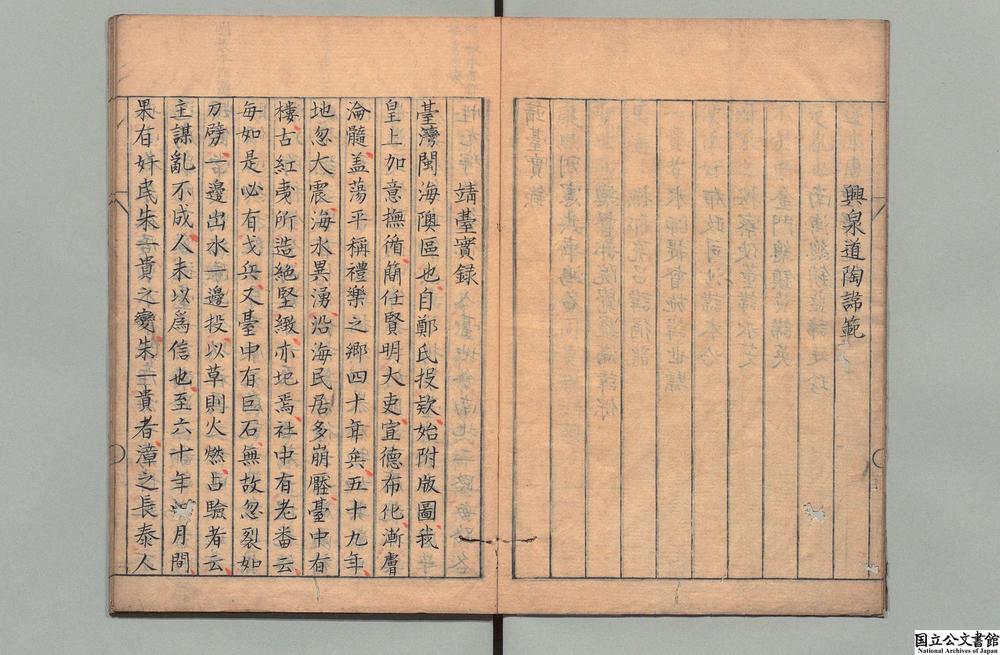 興泉道陶諱範
靖臺實録
臺灣閩海隩區也自鄭氏投欵始附版圖我
皇上加意撫循簡任賢明大吏宣德布化漸膚
淪髓盖蕩平稱禮樂之鄉四十年矣五十九年
地忽大震海水異湧沿海民居多崩壓臺中有
樓古紅夷所造絶堅緻亦圯焉社中有老番云
每如是必有戈兵又臺中有巨石無故忽裂如
刀劈一邊出水一邊投以草則火燃占驗者云
主謀亂不成人未以為信也至六十年月間
果有奸民朱一貴之變朱一貴者漳之長泰人
国立公文書館
National Archives of Japan